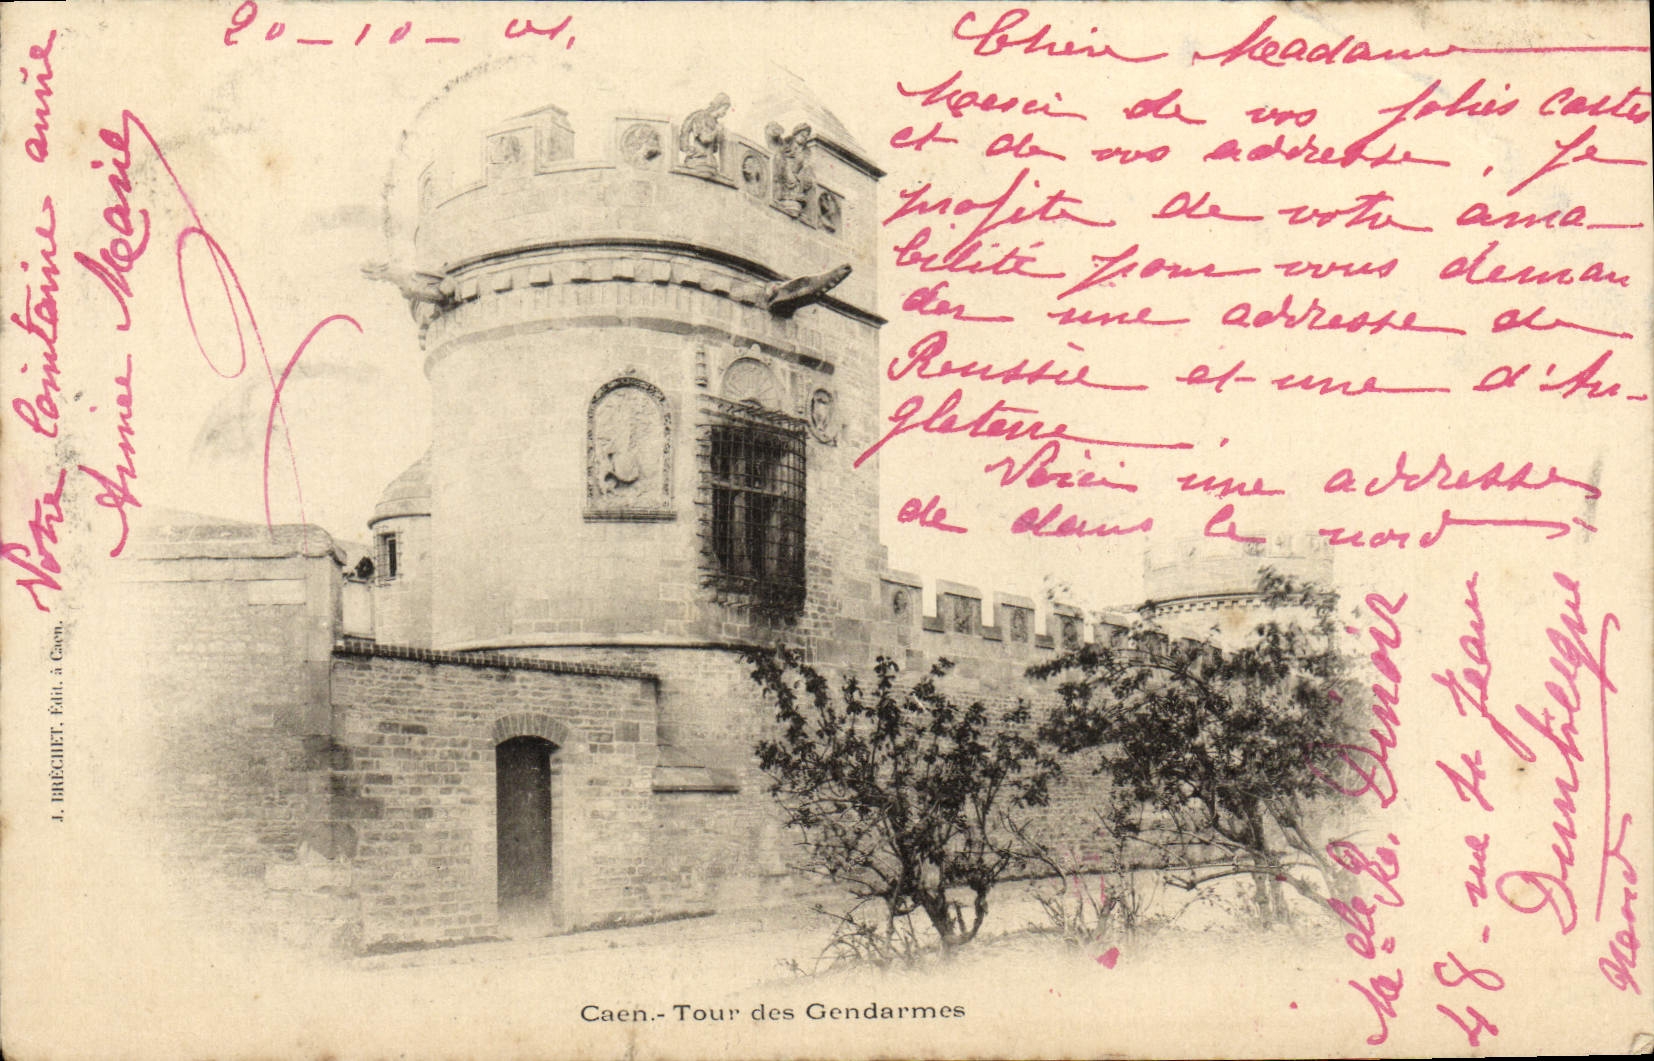 20-10-01.
Chère Madame
Merci de vos jolies cartes
et de vos addresse, Je
profite de votre ama-
bilité pour vous deman
der une addresse de
Roussie et une d'An-
gleterre.
Voici une addresse
de dans le nord
Melle
Dunoir
48 - rue St Jean
Dunkerque
Nord
Votre lointaine amie
Aimée Marie
J. BRÉCHET. Édit. à Caen.
Caen.- Tour des Gendarmes